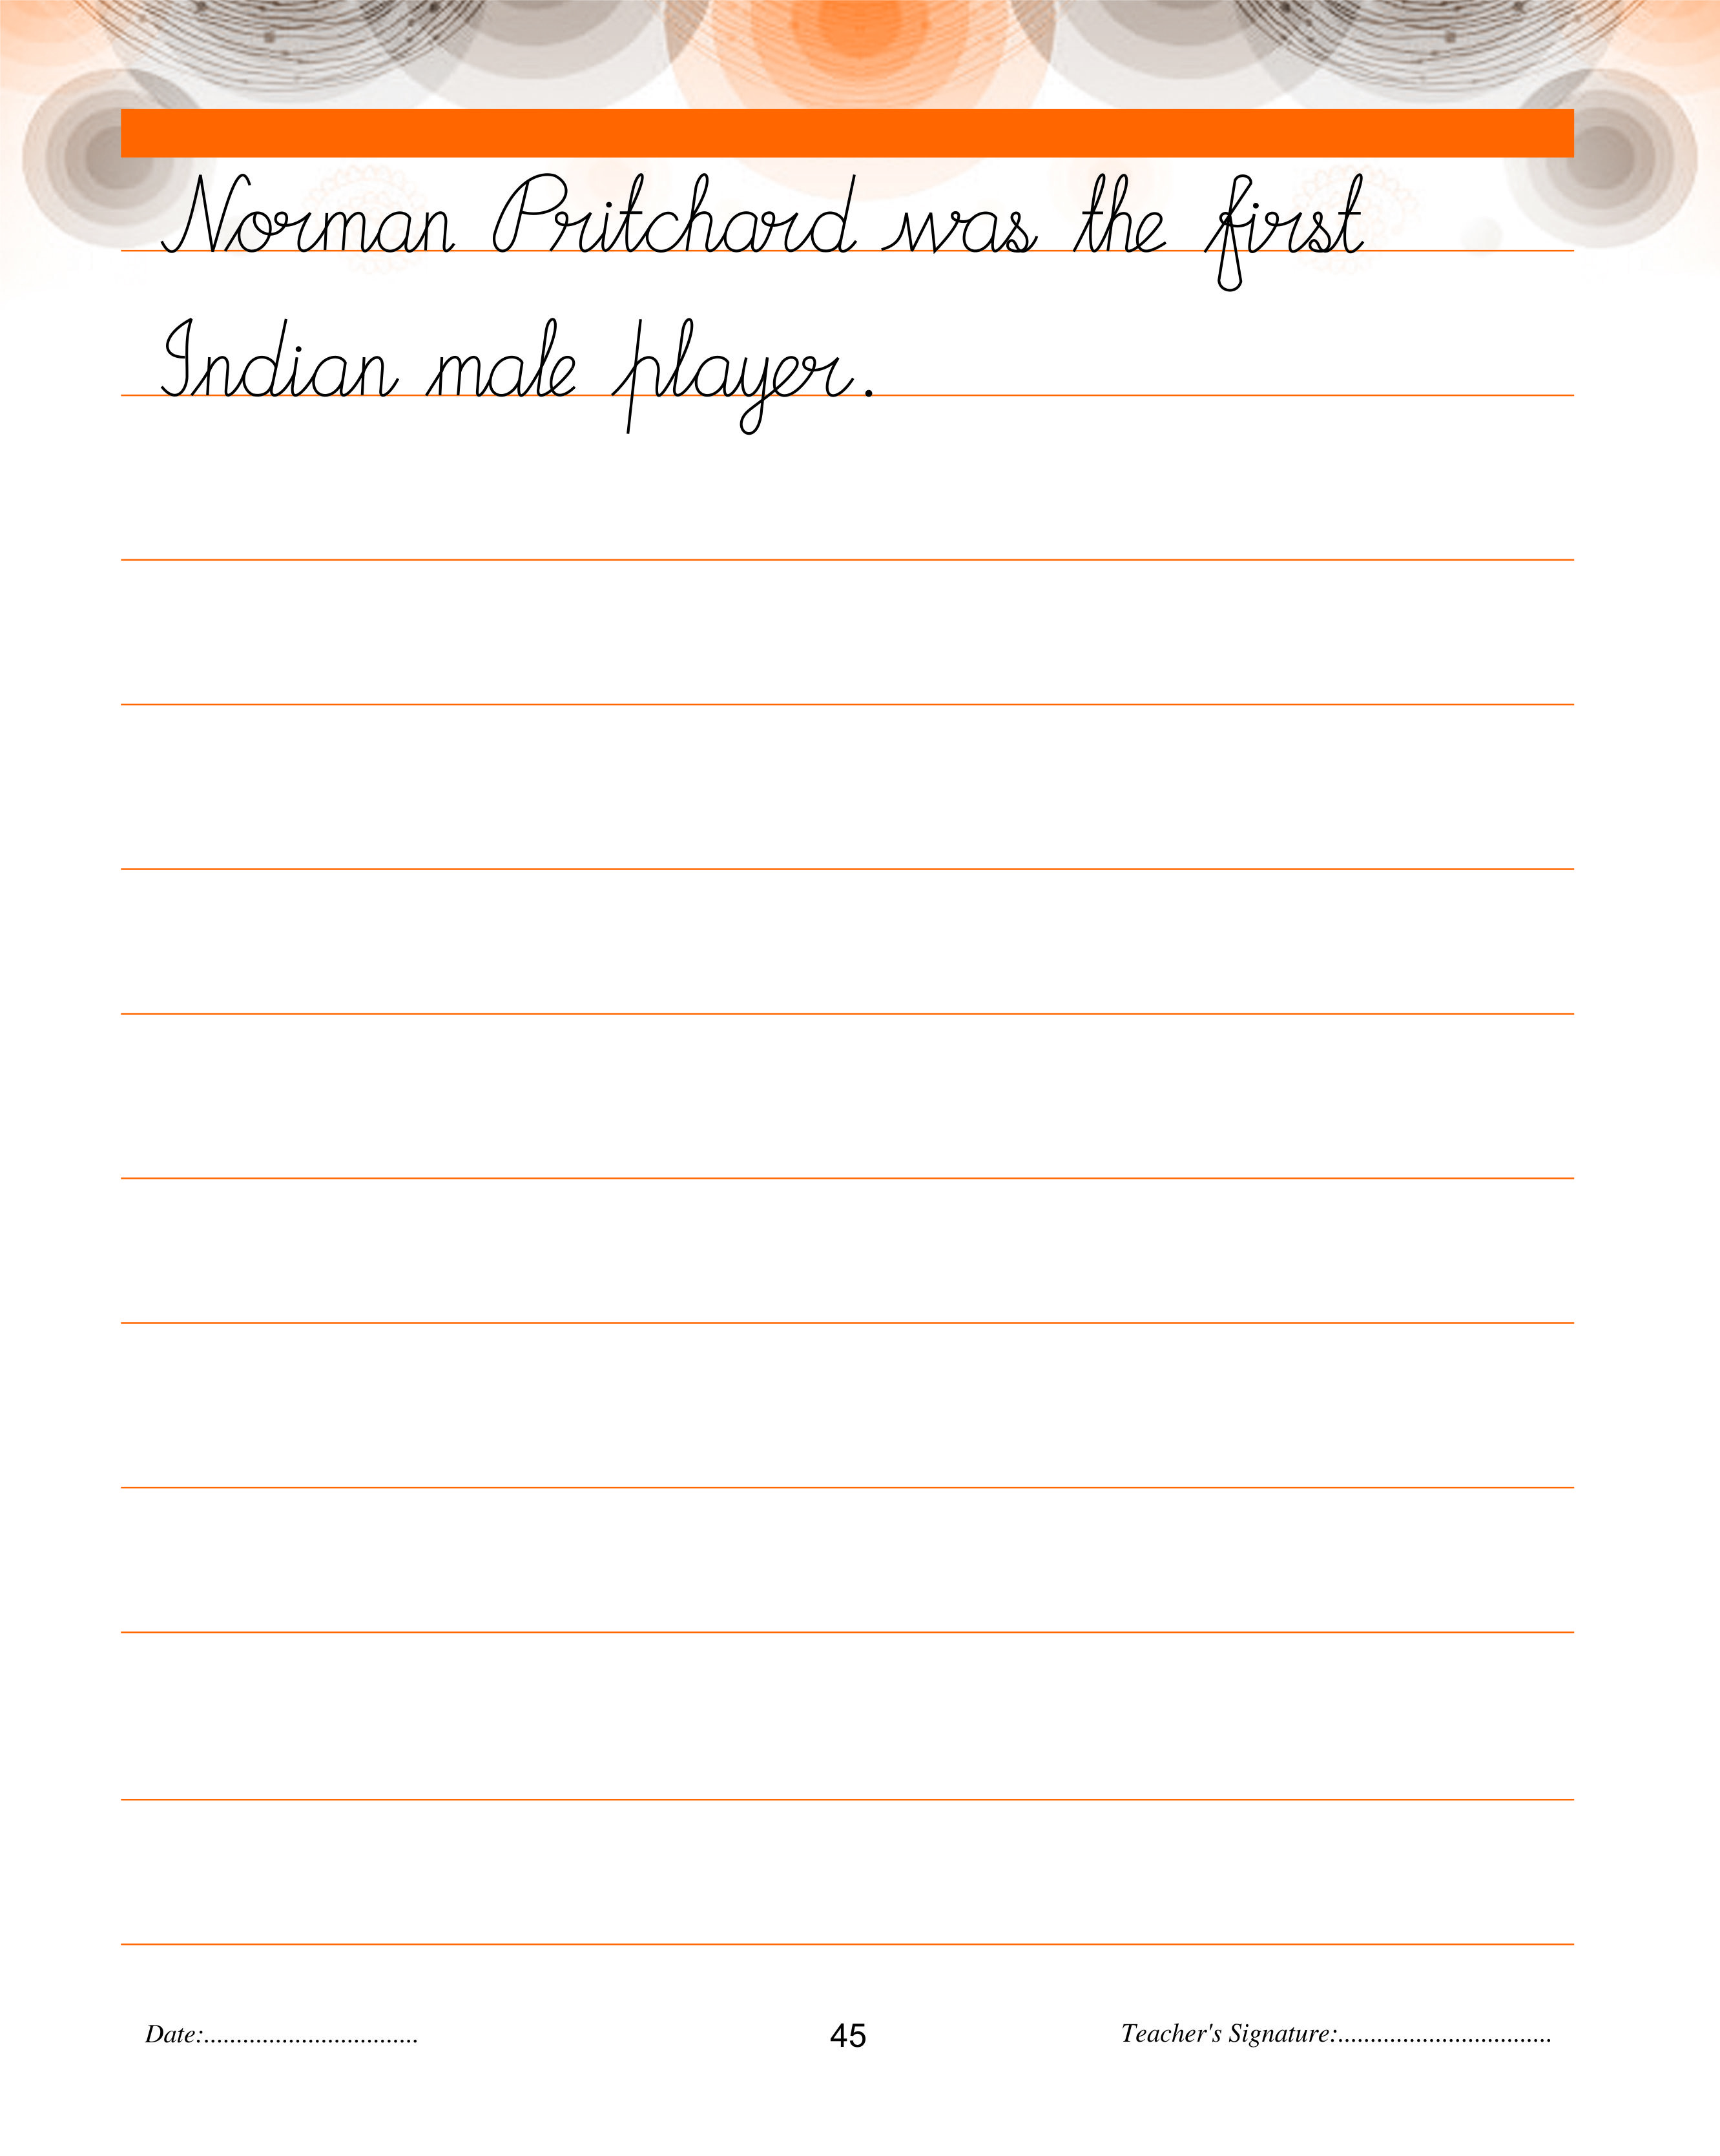 Norman Pritchard was the first
Indian male player.
Date:................................. 45 Teacher's Signature:.................................